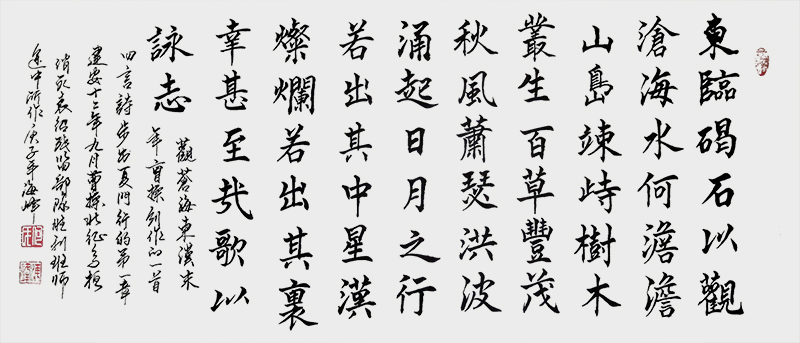 東臨碣石以觀
滄海水何澹澹
山島竦峙樹木
叢生百草豐茂
秋風蕭瑟洪波
涌起日月之行
若出其中星漢
燦爛若出其裏
幸甚至哉歌以
詠志
觀蒼海東漢末
年曹操創作的一首
四言詩步出夏門行的第一章
建安十二年九月曹操北征烏桓
消滅袁紹殘留部隊勝利班師
途中所作庚子年海峰